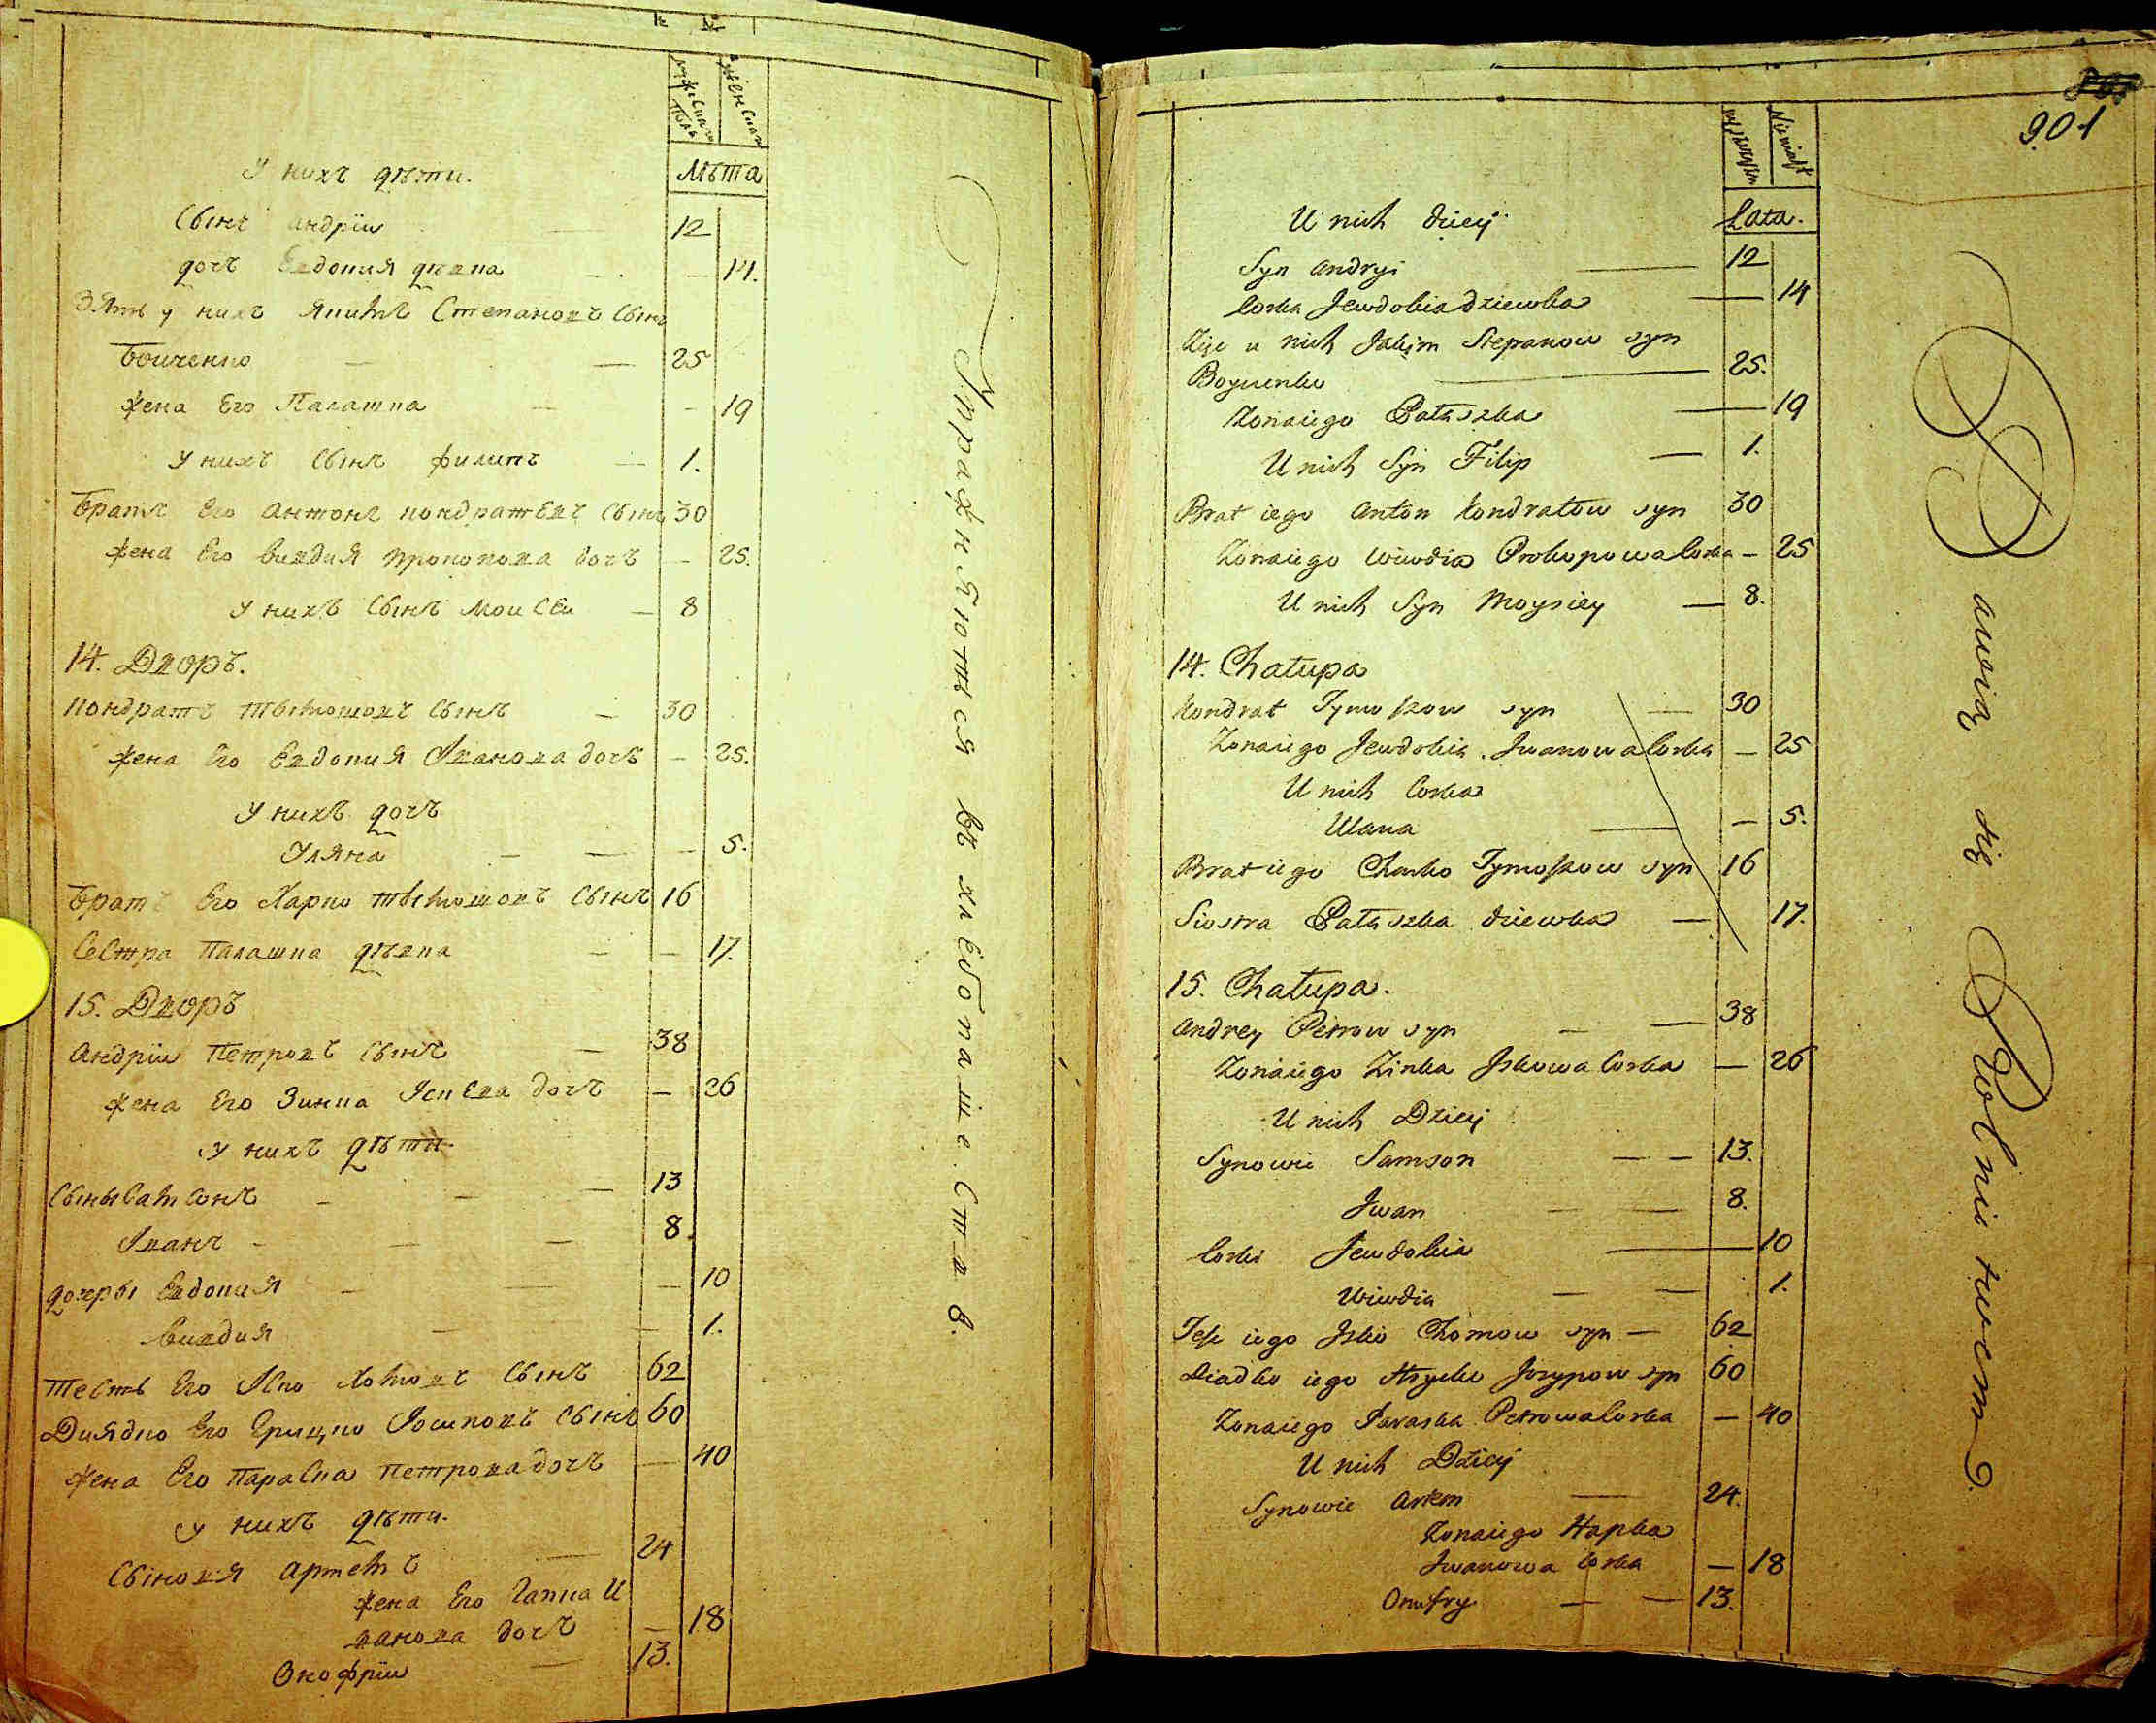 мужеска полу
женска
Лѣта
У нихъ дѣти.
Сынъ Андрій 12
дочъ Евдокия дѣвка — 14.
Зять у нихъ Якимъ Степановъ сынъ
Бойченко — — 25
жена Его Палашка — — 19
У нихъ сынъ Филипъ — 1.
Братъ Его Антонъ Кондратевъ сынъ 30
жена Его Вивдия Прокопова дочъ — 25.
У нихъ сынъ Моисей — 8
14. Дворъ.
Кондратъ Тымошовъ сынъ — 30
жена Его Евдокия Іванова дочъ — 25.
У нихъ дочъ
Уляна — — — 5.
Братъ Его Харко Тымошовъ сынъ 16
Сестра Палашка дѣвка — — 17.
15. Дворъ
Андрій Петровъ сынъ — 38
жена Его Зинка Іскева дочъ — 26
У нихъ дѣти
Сыны Самсонъ — — — 13
Іванъ — — — 8.
дочеры Евдокия — — — 10
Вивдия — — 1.
Тесть Его Іско Хомовъ сынъ 62
Диядко Его Грицко Іосиповъ сынъ 60
жена Его Параска Петрова дочъ — 40
У нихъ дѣти.
Сыновя Артемъ — 24
жена Его Гапка И
ванова дочъ — 18
Онофрій — 13.
Упражняются въ хлебопашеств в.
901
Męszczyzn
Niewiast
Lata.
U nich dzieci
Syn Andryi — 12
Corka Jewdokia dziewka — 14
Zięć u nich Jakim Stepanow syn
Boyczenko — 25.
Zona iego Pałaszka — 19
U nich Syn Filip — 1.
Brat iego Anton Kondratow syn 30
Zona iego Wiwdia Prokopowa Corka — 25
U nich Syn Moysiey — 8.
14. Chałupa
Kondrat Tymoszow syn — 30
Zona iego Jewdokia Jwanowa Corka — 25
U nich Corka
Ulana — — 5.
Brat iego Charko Tymoszow syn 16
Siostra Pałaszka dziewka — 17.
15. Chałupa.
Andrey Petrow syn — — 38
Zona iego Zinka Jskowa Corka — 26
U nich Dzieci
Synowie Samson — — 13.
Jwan — — 8.
Corki Jewdokia — 10
Wiwdia — — 1.
Teść iego Jsko Chomow syn — 62
Diadko iego Hrycko Jozypow syn 60
Zona iego Paraska Petrowa Corka — 40
U nich Dzieci
Synowie Artem — 24.
Zona iego Hapka
Jwanowa Corka — 18
Onufry — — 13.
Bawią się Rolnictwem